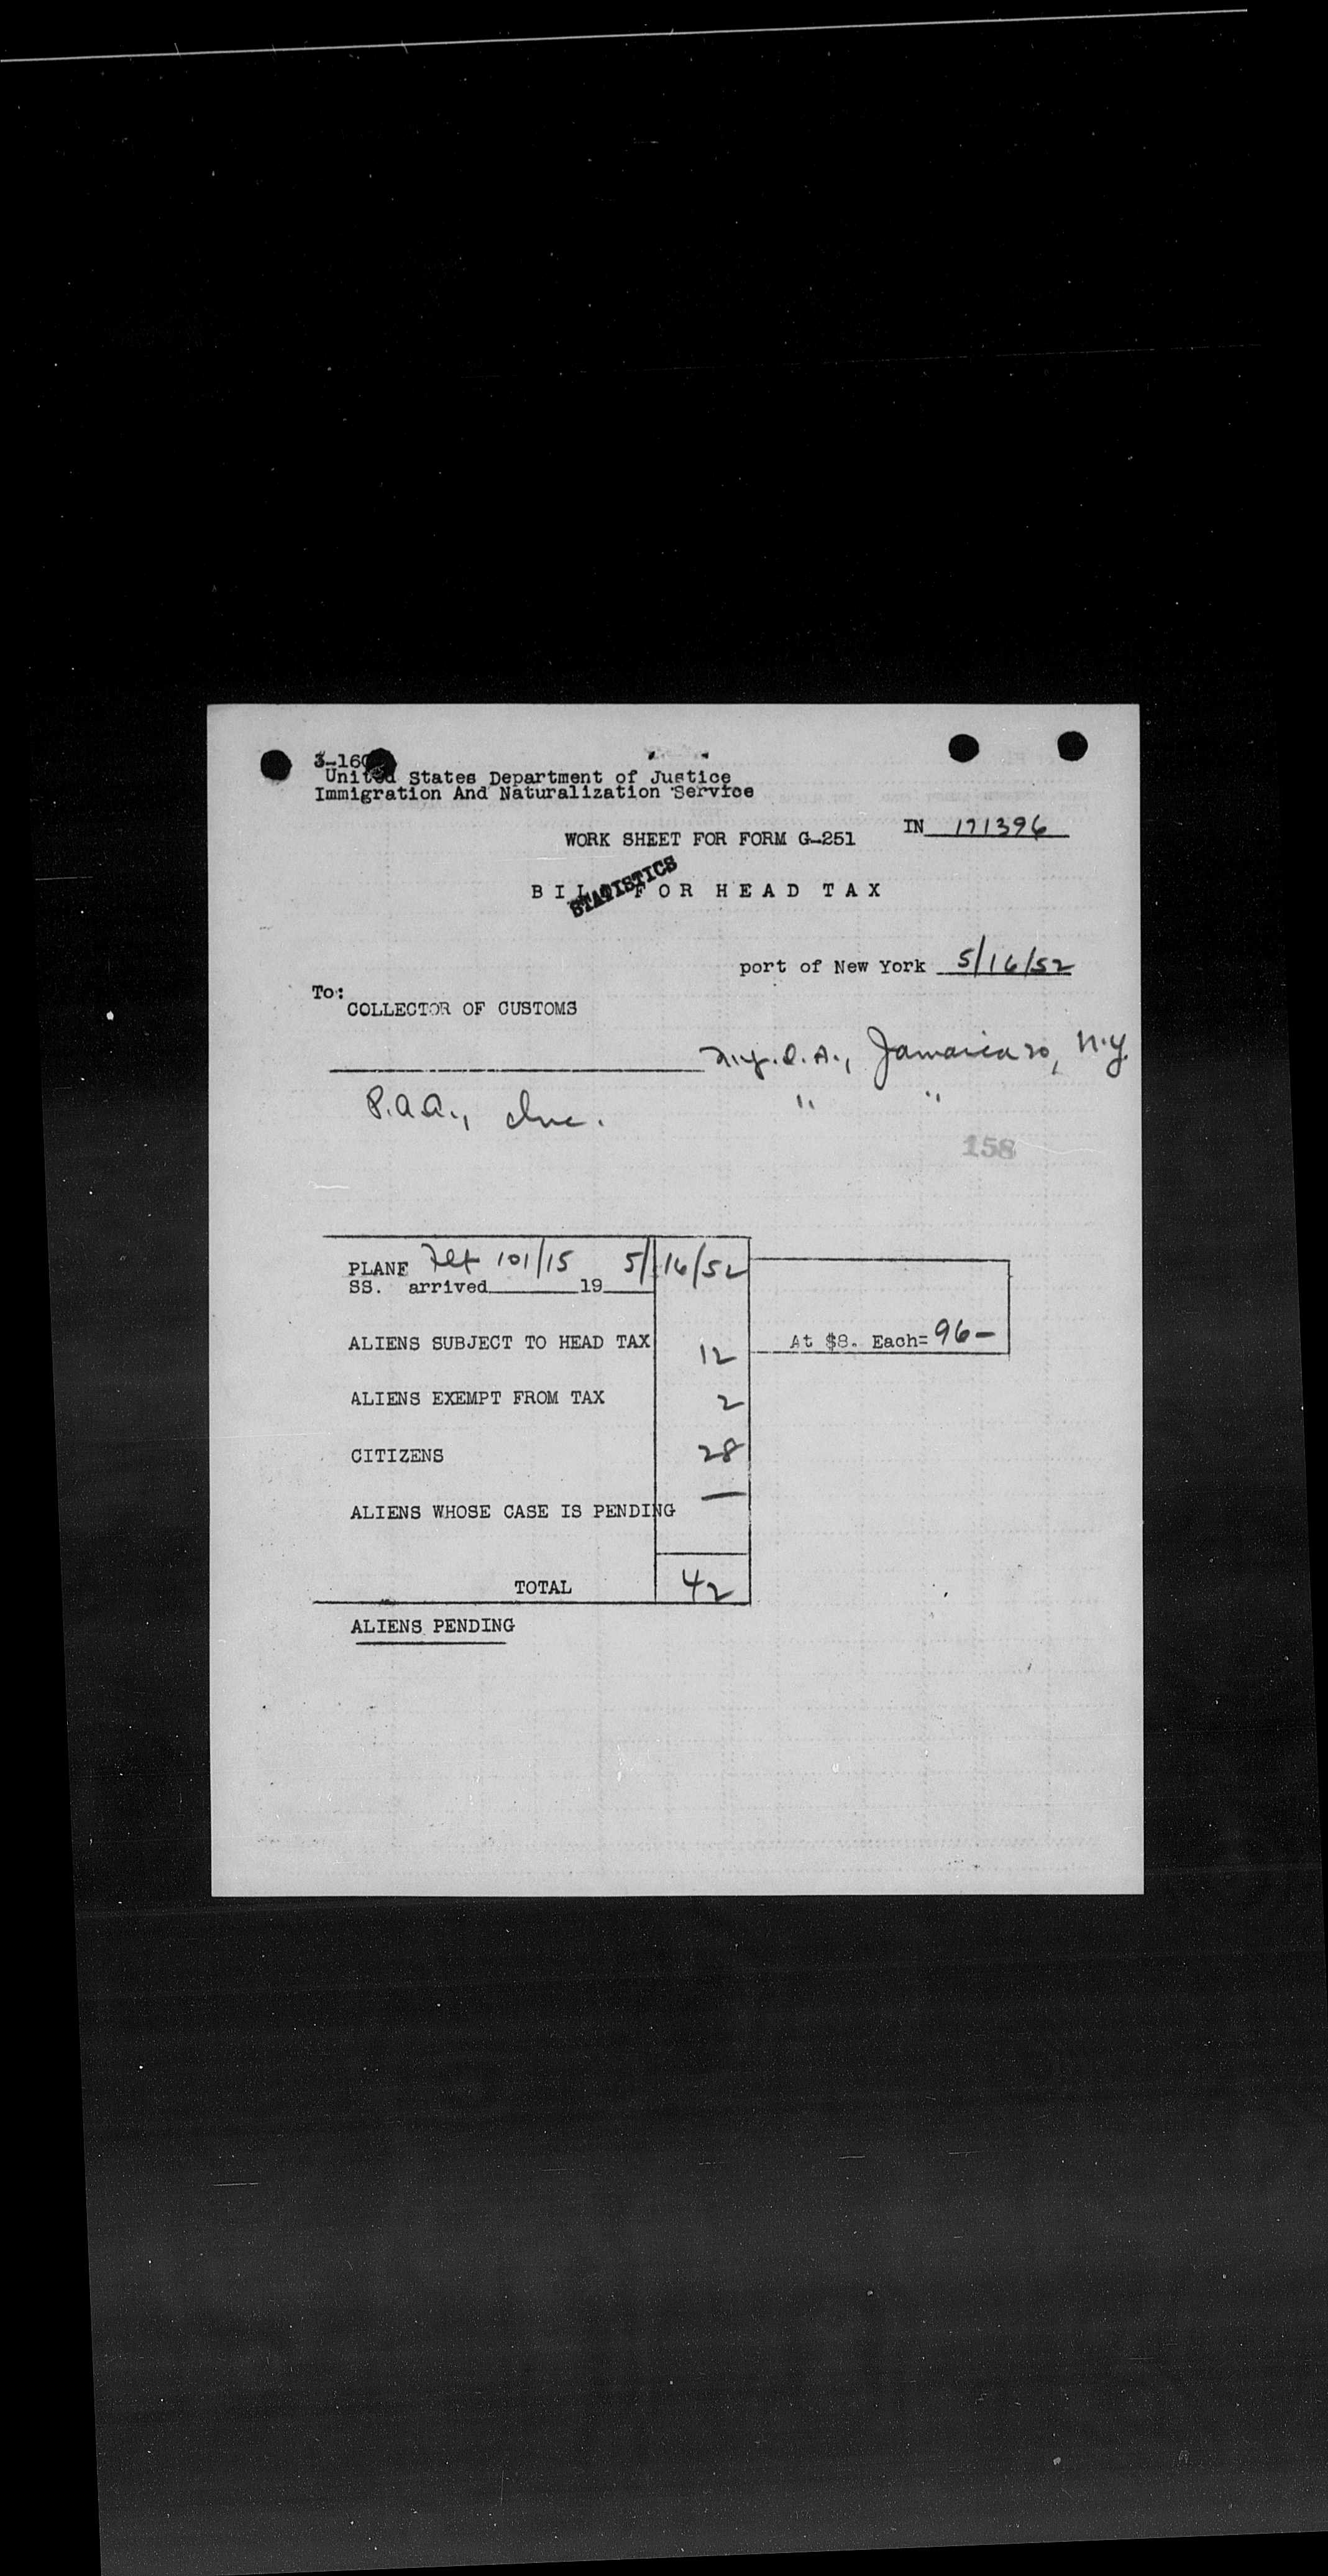 3-160
United States Department of Justice
Immigration And Naturalization Service
IN 171396
WORK SHEET FOR FORM G-251
STATISTICS
BILL FOR HEAD TAX
port of New York 5/16/52
To:
COLLECTOR OF CUSTOMS
N.Y.I.A., Jamaica 20, N.Y.
P.A.A., Inc. " "
158
PLANE Flt 101/15 5/16/52
SS. arrived 19
ALIENS SUBJECT TO HEAD TAX 12 At $8. Each= 96-
ALIENS EXEMPT FROM TAX 2
CITIZENS 28
ALIENS WHOSE CASE IS PENDING —
TOTAL 42
ALIENS PENDING